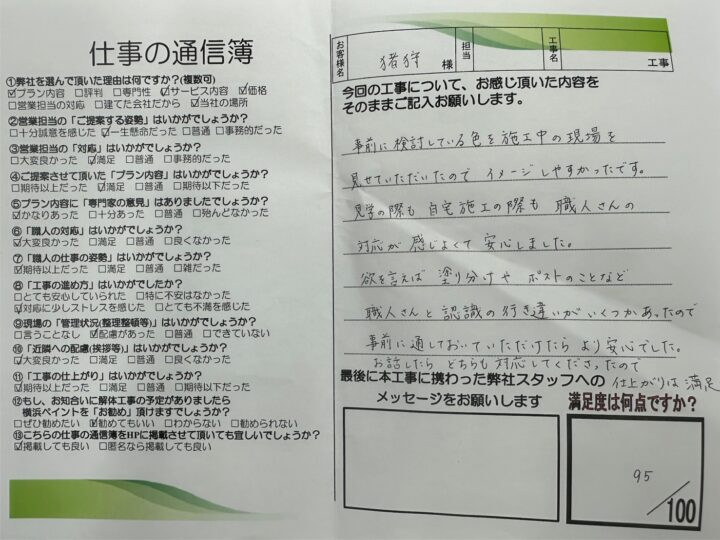 仕事の通信簿
①弊社を選んで頂いた理由は何ですか?(複数可)
☑プラン内容 □評判 □専門性 ☑サービス内容 ☑価格
□営業担当の対応 □建てた会社だから ☑当社の場所
②営業担当の「ご提案する姿勢」はいかがでしょうか?
□十分誠意を感じた ☑一生懸命だった □普通 □事務的だった
③営業担当の「対応」はいかがでしょうか?
□大変良かった ☑満足 □普通 □事務的だった
④ご提案させて頂いた「プラン内容」はいかがでしょうか?
□期待以上だった ☑満足 □普通 □期待以下だった
⑤プラン内容に「専門家の意見」はありましたでしょうか?
☑かなりあった □十分あった □普通 □殆んどなかった
⑥「職人の対応」はいかがでしょうか?
☑大変良かった □満足 □普通 □良くなかった
⑦「職人の仕事の姿勢」はいかがでしょうか?
☑期待以上だった □満足 □普通 □雑だった
⑧「工事の進め方」はいかがでしたか?
□とても安心していられた □特に不安はなかった
☑対応に少しストレスを感じた □とても不満を感じた
⑨現場の「管理状況(整理整頓等)」はいかがでしょうか?
□言うことなし ☑配慮があった □普通 □できていない
⑩「近隣への配慮(挨拶等)」はいかがでしょうか?
☑大変良かった □満足 □普通 □良くなかった
⑪「工事の仕上がり」はいかがでしょうか?
☑期待以上だった □満足 □普通 □期待以下だった
⑫もし、お知合いに解体工事の予定がありましたら
横浜ペイントを「お勧め」頂けますでしょうか?
□ぜひ勧めたい ☑勧めてもいい □わからない □勧められない
⑬こちらの仕事の通信簿をHPに掲載させて頂いても宜しいでしょうか?
☑掲載しても良い □匿名なら掲載しても良い
お客様名 猪狩 様 担当 工事名 工事
今回の工事について、お感じ頂いた内容を
そのままご記入お願いします。
事前に検討している色を施工中の現場を
見せていただいたので イメージしやすかったです。
見学の際も 自宅施工の際も 職人さんの
対応が 感じよくて 安心しました。
欲を言えば 塗り分けや ポストのことなど
職人さんと 認識の 行き違いが いくつか あったので
事前に 通しておいていただけたら より安心でした。
お話したら どちらも 対応してくださったので
仕上がりは 満足
最後に本工事に携わった弊社スタッフへの
メッセージをお願いします
満足度は何点ですか?
95
/100